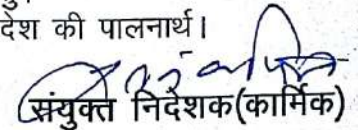 देश की पालनार्थ।
संयुक्त निदेशक(कार्मिक)